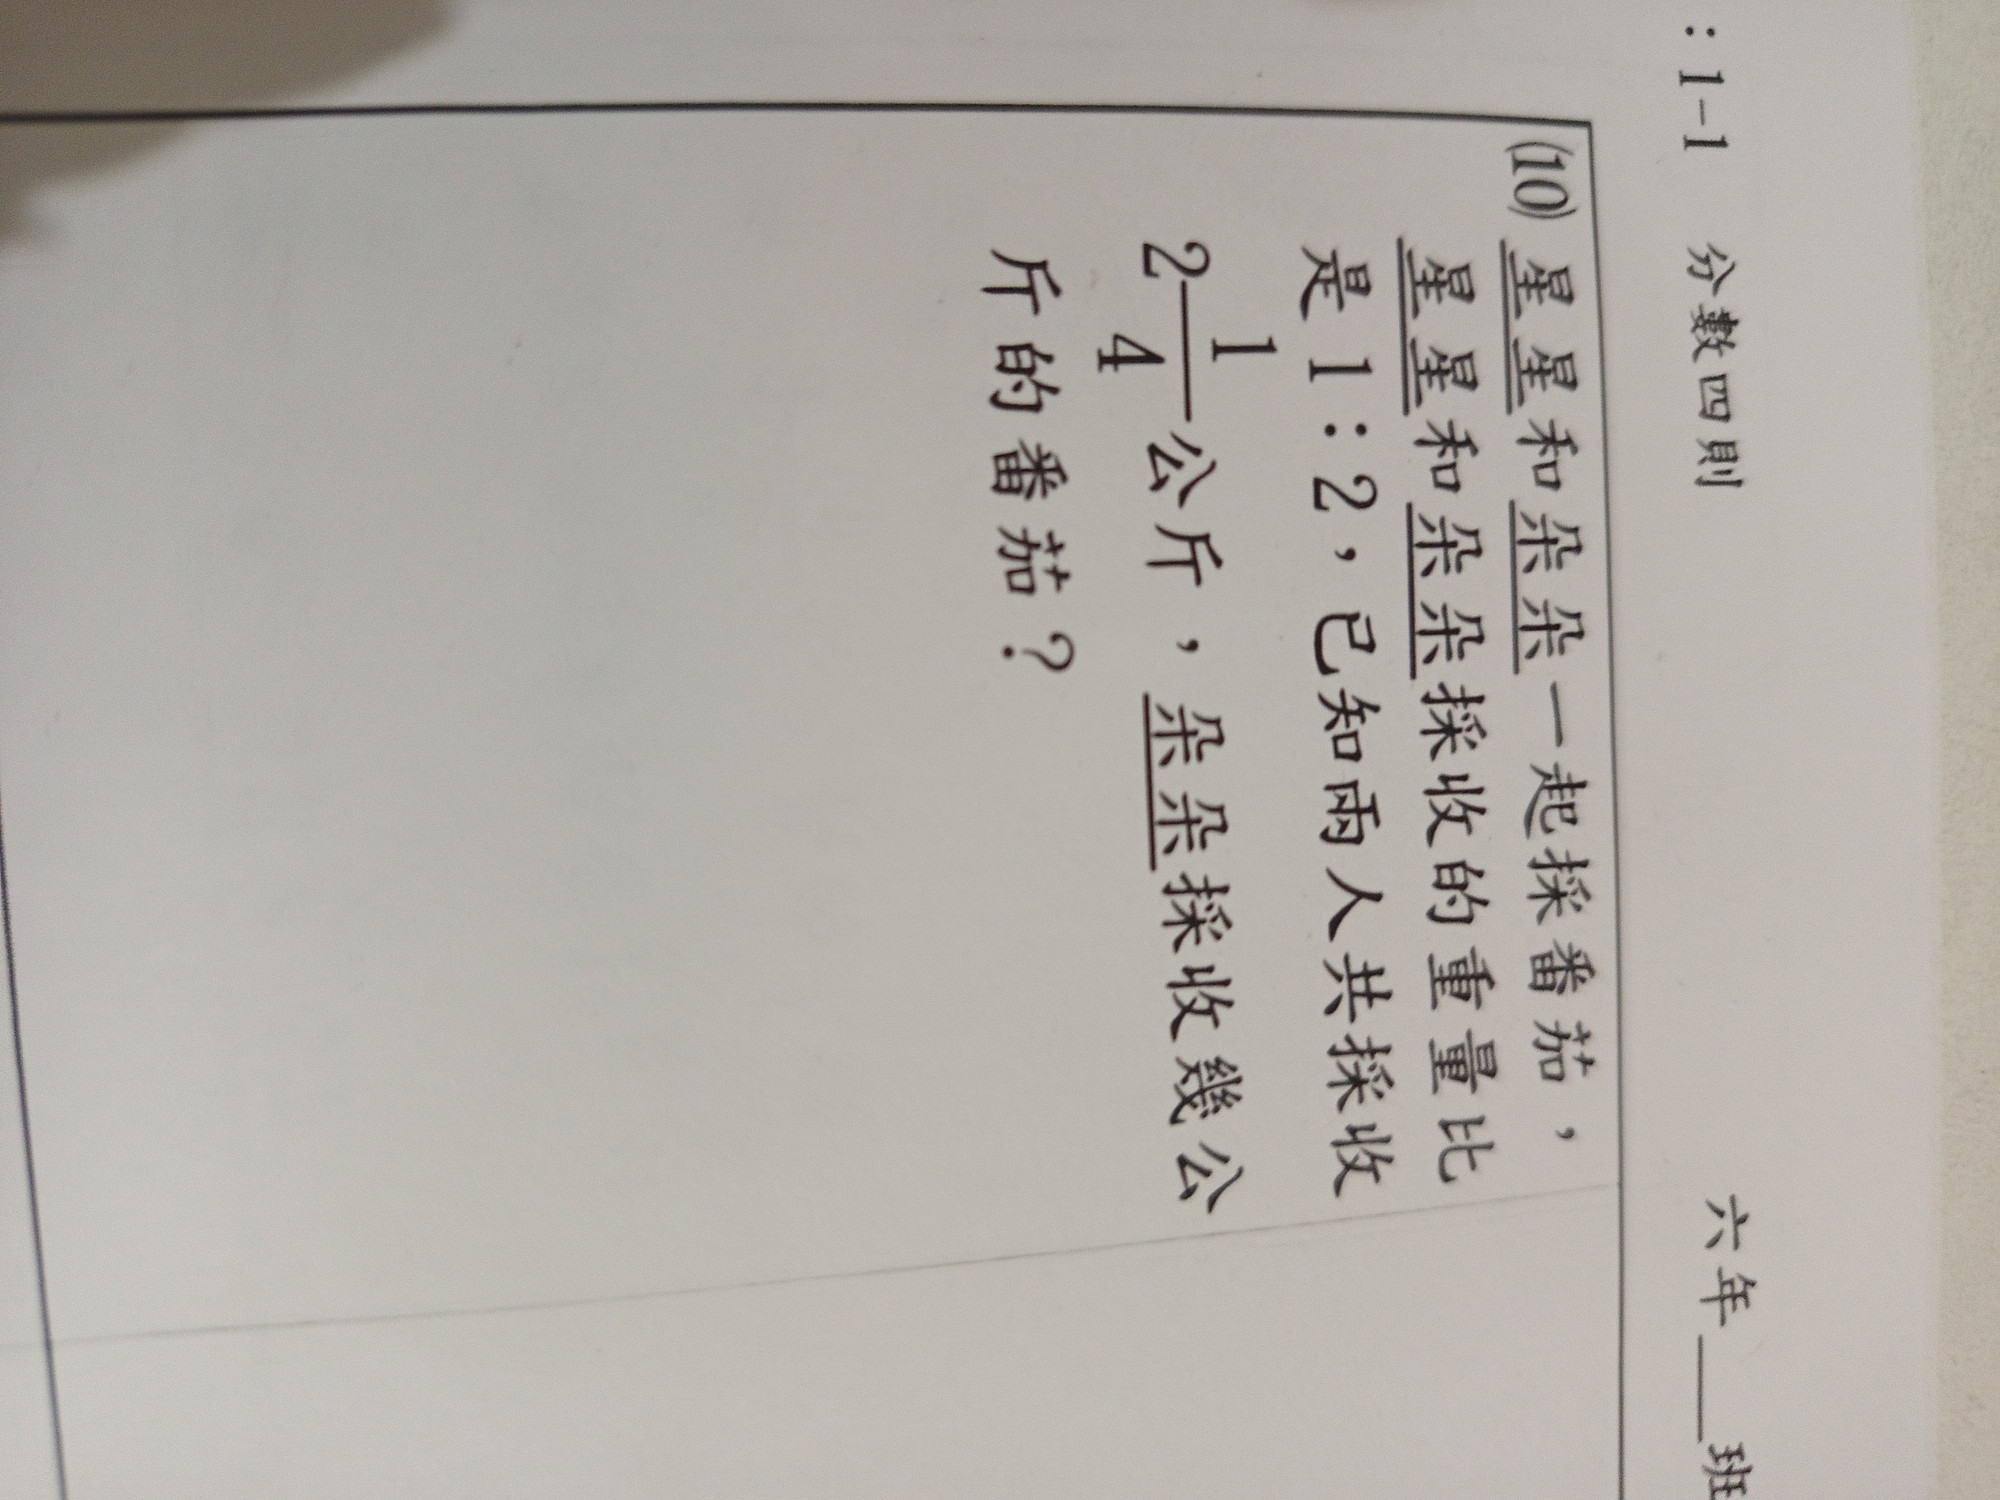 ：1-1 分數四則 六年___班
(10) 星星和朵朵一起採番茄，
星星和朵朵採收的重量比
是1：2，已知兩人共採收
2 1/4 公斤，朵朵採收幾公
斤的番茄？